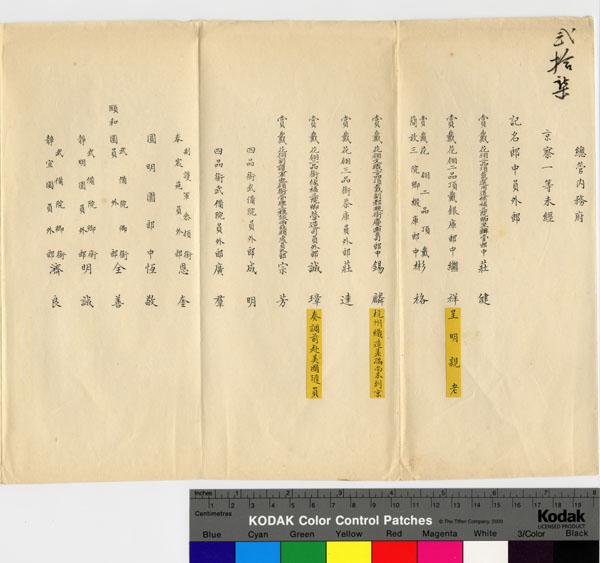 弍拾柒
總管内務府
京察一等未經
記名郎中員外郎
郎中莊健
賞戴花翎二品頂戴銀庫郎中繼祥
呈明親老
賞戴花翎二品頂戴
簡放三院卿緞庫郎中彬格
郎中錫麟
杭州織造差滿尚未到京
賞戴花翎三品銜茶庫員外郎莊達
員外郎誠璋
奏調前赴美國隨員
宗芳
四品銜武備院員外郎成明
四品銜武備院員外郎廣羣
副護軍參領銜
奉宸苑員外郎恩奎
圓明園郎中恒敬
武備院卿銜
頤和園員外郎全善
武備院卿銜
靜明園員外郎明誠
武備院卿銜
靜宜園員外郎濟良
Inches 1 2 3 4 5 6 7 8
Centimetres
KODAK Color Control Patches
© The Tiffen Company, 2000
Kodak
LICENSED PRODUCT
Blue Cyan Green Yellow Red Magenta White 3/Color Black